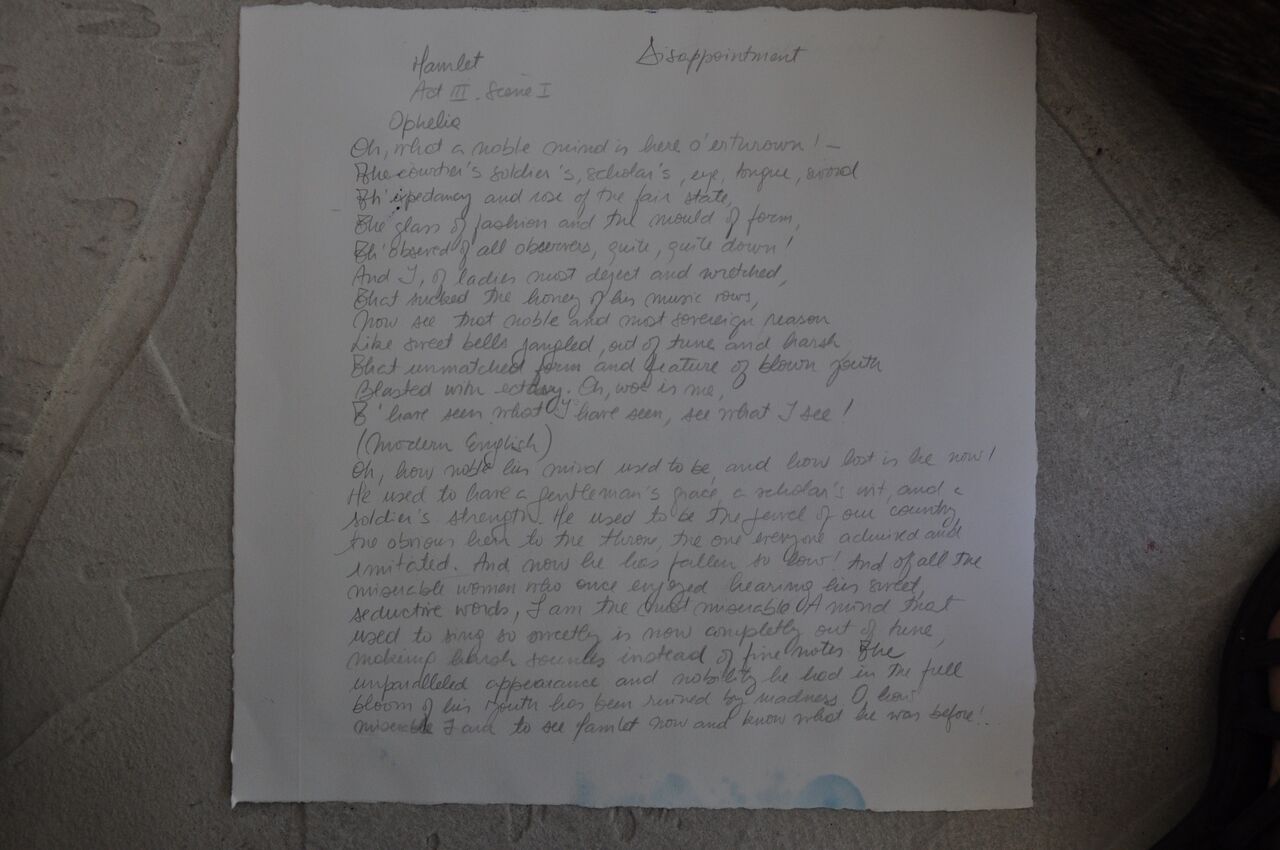 Hamlet Disappointment
Act III. Scene I
Ophelia
Oh, what a noble mind is here o'erthrown! –
The courtier's soldier's, scholar's, eye, tongue, sword
Th' expedancy and rose of the fair state,
The glass of fashion and the mould of form,
Th' observed of all observers, quite, quite down!
And I, of ladies most deject and wretched,
That sucked the honey of his music vows,
Now see that noble and most sovereign reason
Like sweet bells jangled, out of tune and harsh
That unmatched form and feature of blown youth
Blasted with ectasy. Oh, woe is me,
T' have seen what I have seen, see what I see!
(Modern English)
Oh, how noble his mind used to be, and how lost is he now!
He used to have a gentleman's grace, a scholar's wit, and a
soldier's strength. He used to be the jewel of our country
the obvious heir to the throne, the one everyone admired and
imitated. And now he has fallen so low! And of all the
miserable women who once enjoyed hearing his sweet,
seductive words, I am the most miserable. A mind that
used to sing so sweetly is now completly out of tune,
making harsh sounds instead of fine notes The
unparalleled appearance and nobility he had in the full
bloom of his youth has been ruined by madness. O how
miserable I am to see Hamlet now and know what he was before!